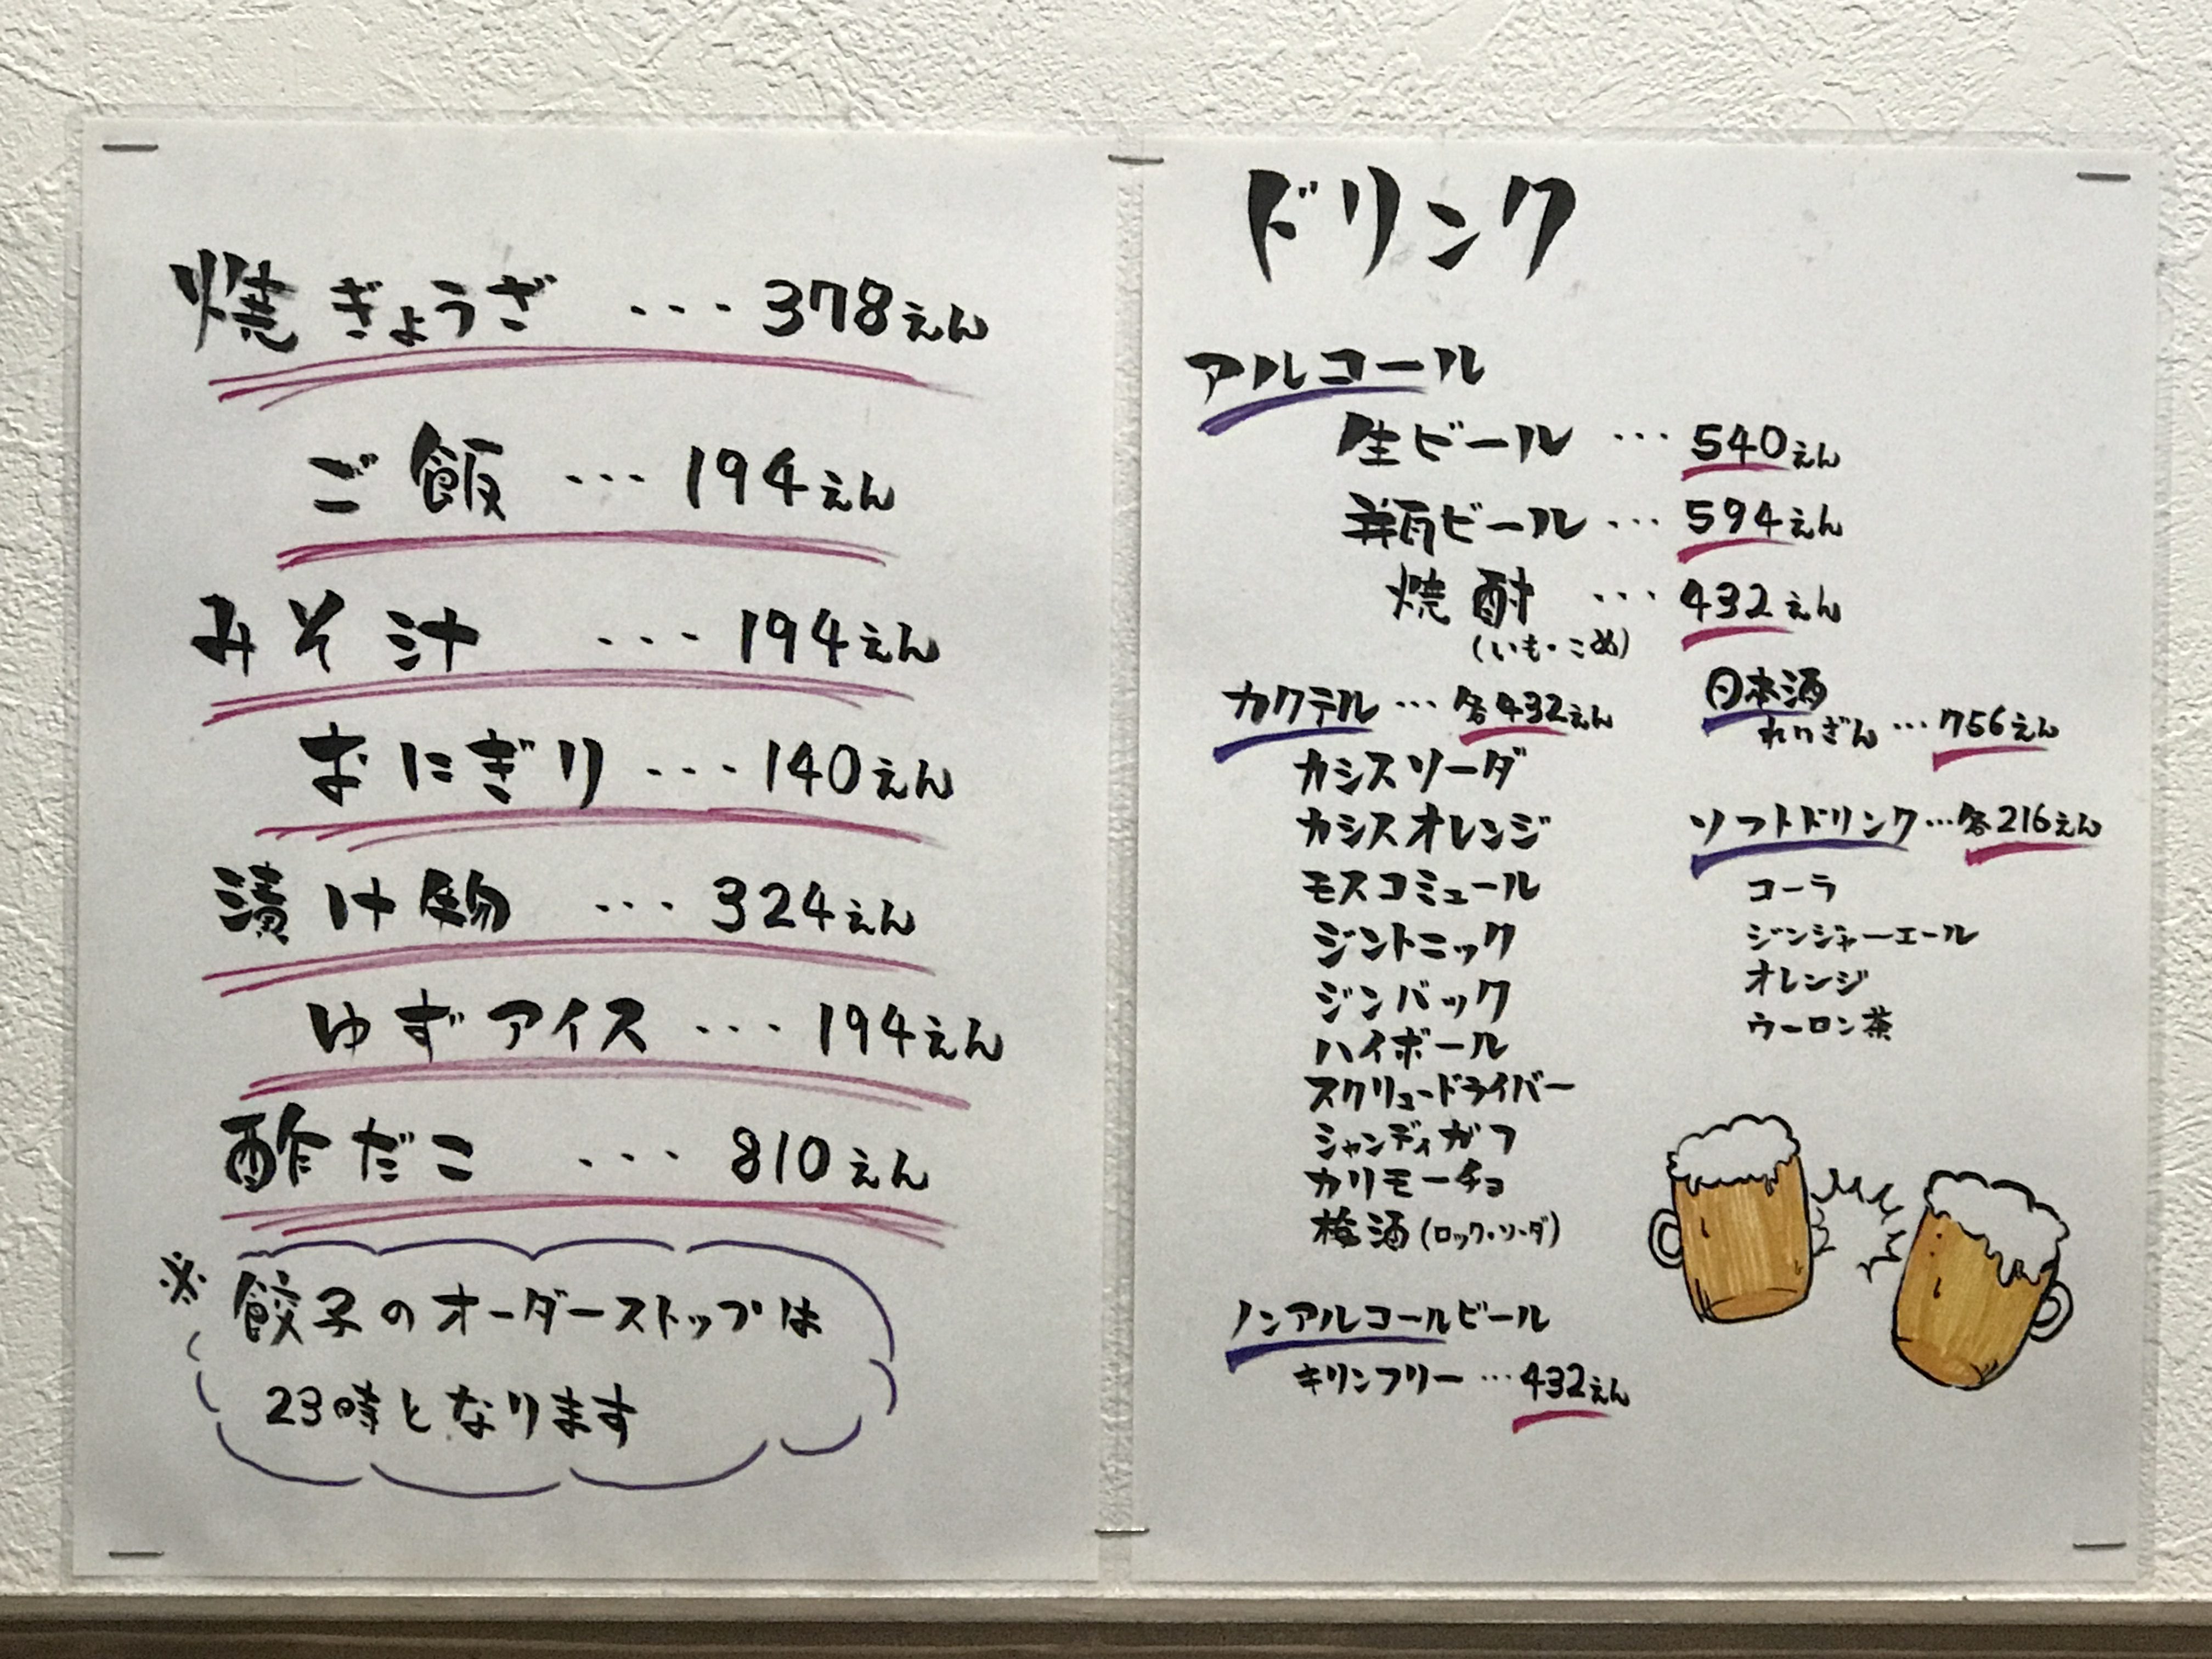 焼ぎょうざ ... 378えん
ご飯 ... 194えん
みそ汁 ... 194えん
おにぎり ... 140えん
漬け物 ... 324えん
ゆずアイス ... 194えん
酢だこ ... 810えん
※餃子のオーダーストップは
23時となります
ドリンク
アルコール
生ビール ... 540えん
瓶ビール ... 594えん
焼酎 ... 432えん
(いも・こめ)
カクテル ... 各432えん
カシスソーダ
カシスオレンジ
モスコミュール
ジントニック
ジンバック
ハイボール
スクリュードライバー
シャンディガフ
カリモーチョ
梅酒(ロック・ソーダ)
ノンアルコールビール
キリンフリー ... 432えん
日本酒
れいざん ... 756えん
ソフトドリンク ... 各216えん
コーラ
ジンジャーエール
オレンジ
ウーロン茶